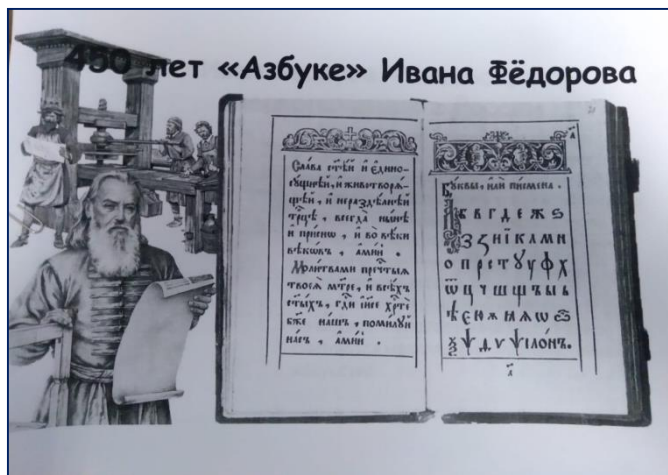 450 лет «Азбуке» Ивана Фёдорова
Сла́ва ст҃ѣ́й и є҆дино-
сꙋ́щнѣй, и҆ животворѧ́-
щей, и҆ нераздѣ́лнѣй
трⷪ҇цѣ, всегда̀ ны́нѣ
и҆ при́снѡ, и҆ во вѣ́ки
вѣкѡ́въ, а҆ми́нь.
Моли́твами пречⷭ҇тыѧ
твоеѧ̀ мт҃ре, и҆ всѣ́хъ
ст҃ы́хъ, гдⷭ҇и і҆и҃се хрⷭ҇тѐ
бж҃е на́шъ, поми́лꙋй
на́съ, а҆ми́нь.
Бꙋ́квы, и҆лѝ писмена̀.
в г д е ж ѕ
н ї к л м н
о п р с т ꙋ у ф х
ѿ ц ч ш щ ъ ы ь